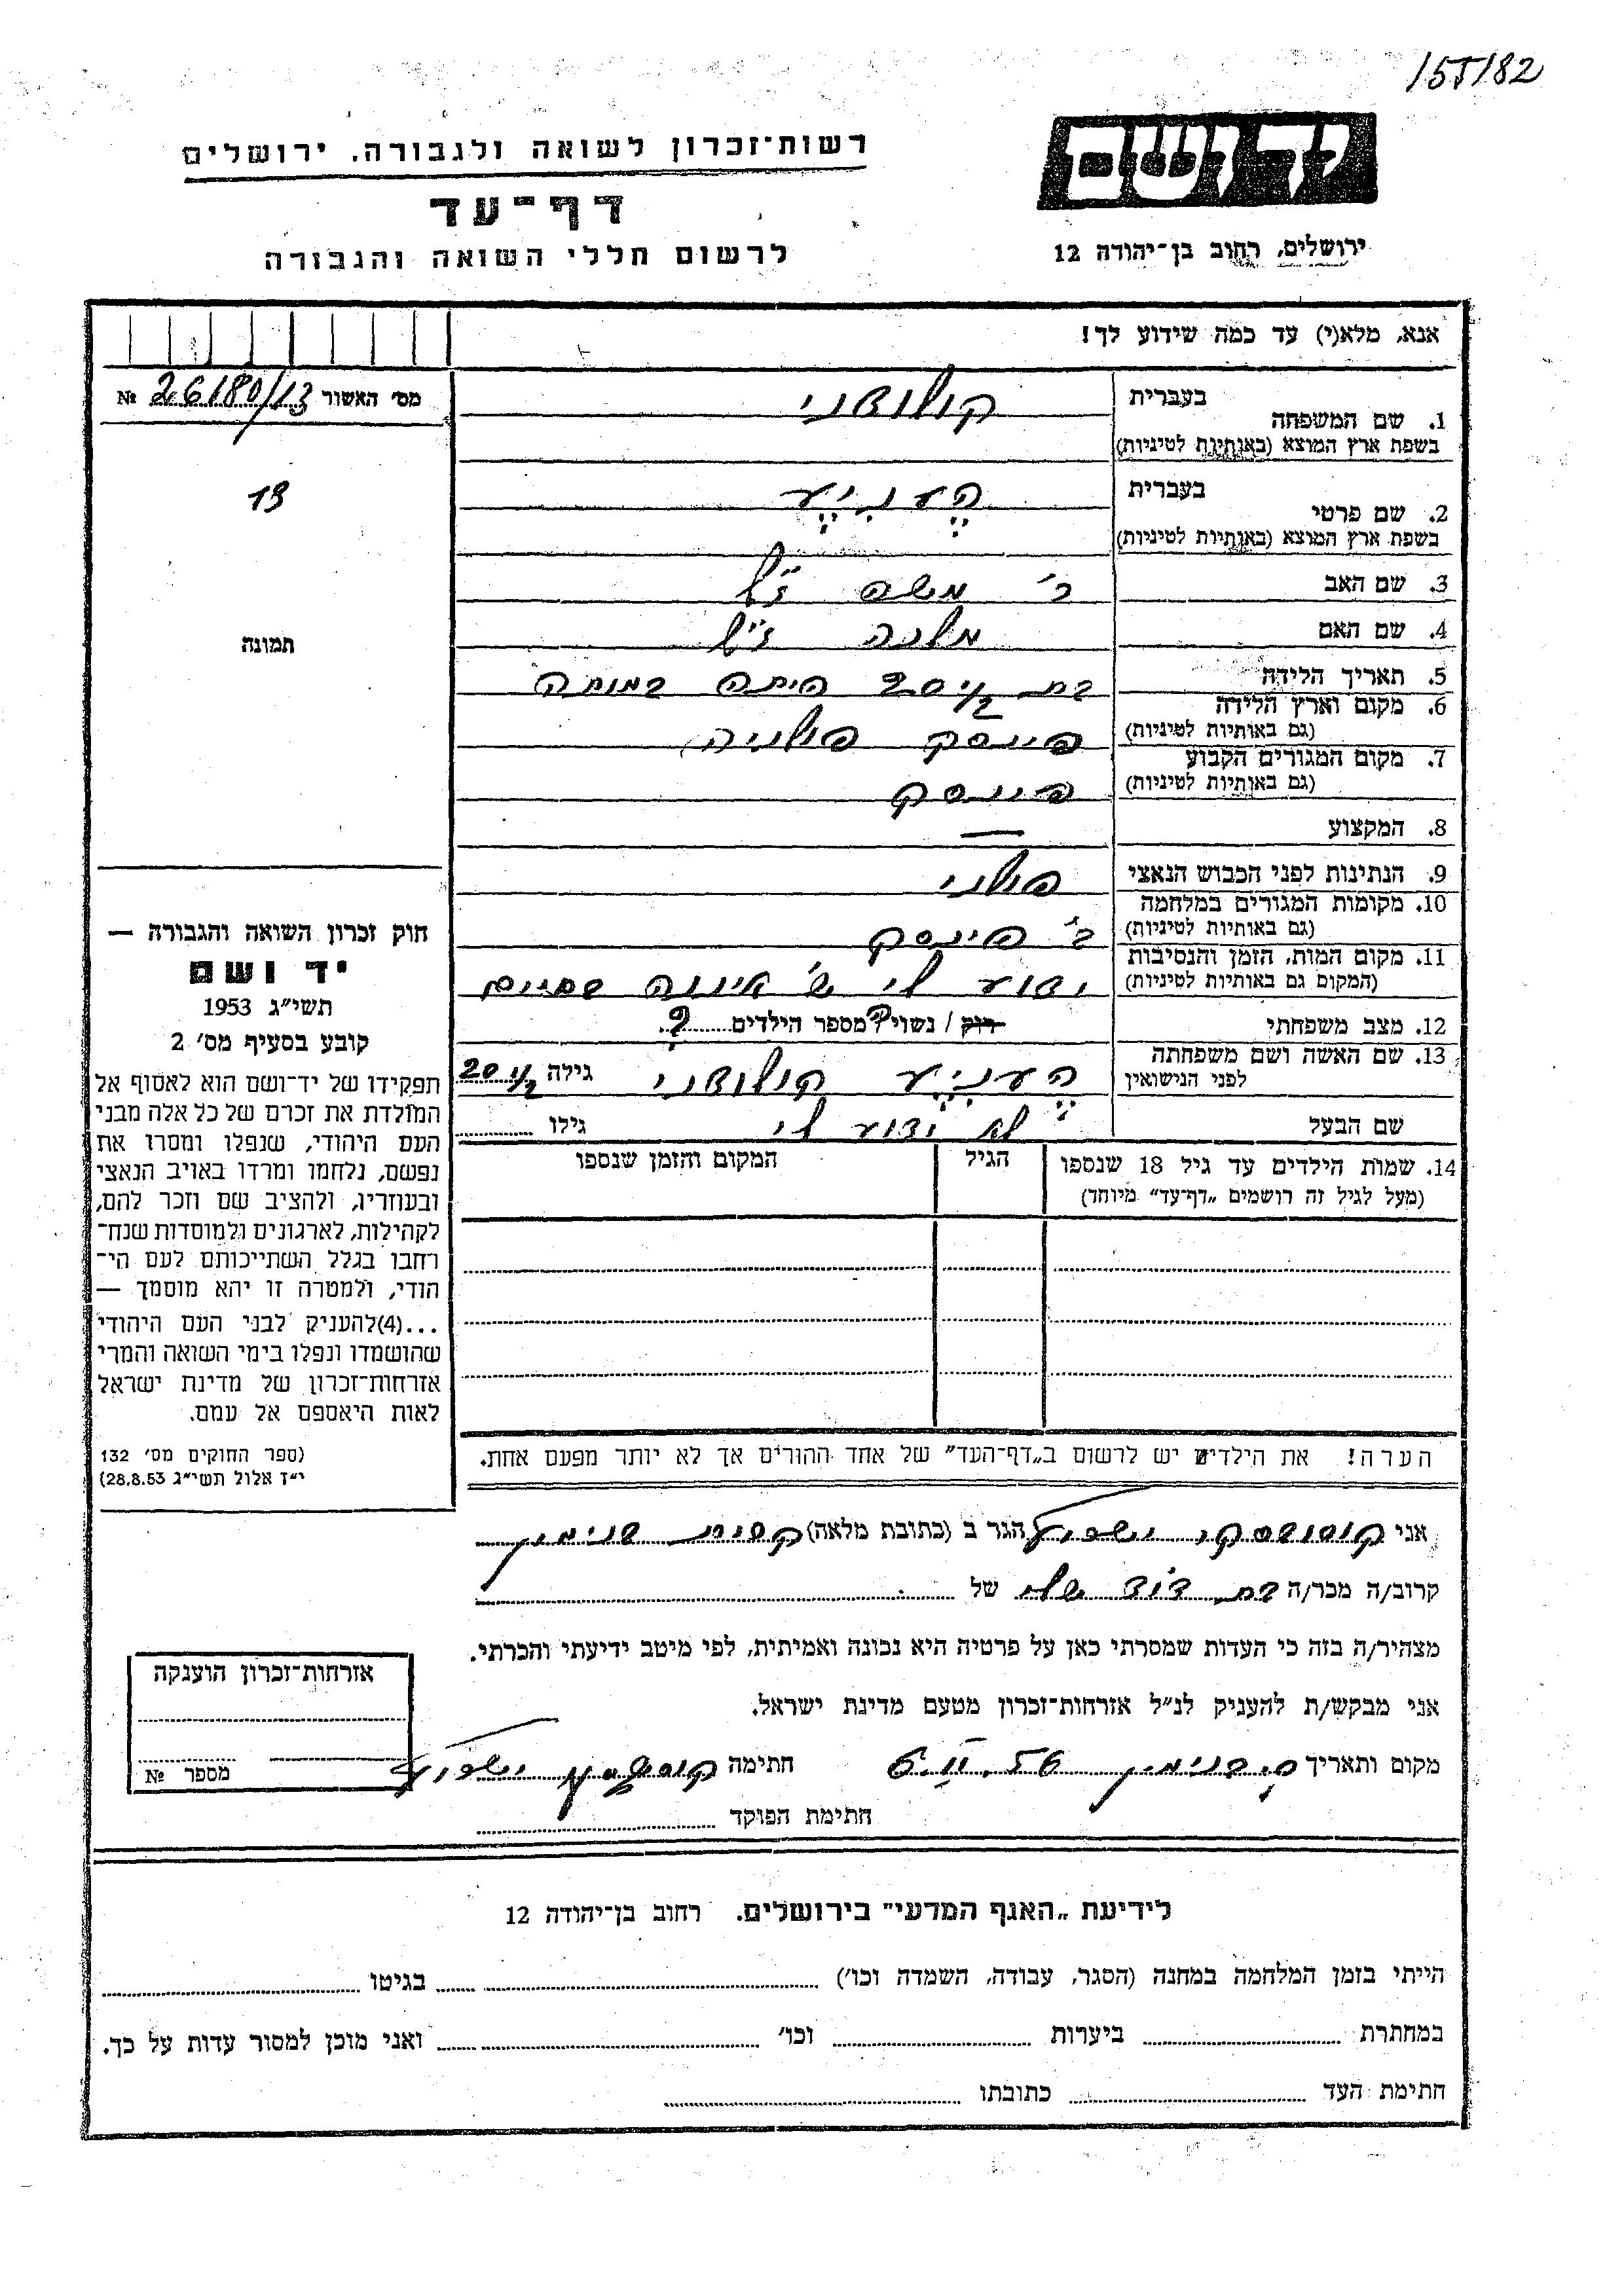 15T/82
יד ושם
ירושלים, רחוב בן־יהודה 12
רשות־זכרון לשואה ולגבורה, ירושלים
דף־עד
לרשום חללי השואה והגבורה
אנא, מלא(י) עד כמה שידוע לך!
מס׳ האשור 26180/13 №
13
תמונה
1. שם המשפחה בעברית קולודני
בשפת ארץ המוצא (באותיות לטיניות)
2. שם פרטי בעברית הֶעניֶע
בשפת ארץ המוצא (באותיות לטיניות)
3. שם האב ר׳ משה ז״ל
4. שם האם מלכה ז״ל
5. תאריך הלידה בת 20 1/2 היתה במותה
6. מקום וארץ הלידה
(גם באותיות לטיניות) פינסק פולניה
7. מקום המגורים הקבוע
(גם באותיות לטיניות) פינסק
8. המקצוע —
9. הנתינות לפני הכבוש הנאצי פולני
10. מקומות המגורים במלחמה
(גם באותיות לטיניות) ב׳ פינסק
11. מקום המות, הזמן והנסיבות
(המקום גם באותיות לטיניות) ידוע לי ש׳ איננה בחיים
12. מצב משפחתי רוק / נשוי ה מספר הילדים ?
13. שם האשה ושם משפחתה
לפני הנישואין הֶעניֶע קולודני גילה 20 1/2
שם הבעל לא ידוע לי גילו
14. שמות הילדים עד גיל 18 שנספו הגיל המקום והזמן שנספו
(מעל לגיל זה רושמים „דף־עד״ מיוחד)
הערה! את הילדים יש לרשום ב„דף־העד״ של אחד ההורים אך לא יותר מפעם אחת.
חוק זכרון השואה והגבורה —
יד ושם
תשי״ג 1953
קובע בסעיף מס׳ 2
תפקידו של יד־ושם הוא לאסוף אל
המולדת את זכרם של כל אלה מבני
העם היהודי, שנפלו ומסרו את
נפשם, נלחמו ומרדו באויב הנאצי
ובעוזריו, ולהציב שם וזכר להם,
לקהילות, לארגונים ולמוסדות שנח־
רחבו בגלל השתייכותם לעם הי־
הודי, ולמטרה זו יהא מוסמך —
...(4)להעניק לבני העם היהודי
שהושמדו ונפלו בימי השואה והמרי
אזרחות־זכרון של מדינת ישראל
לאות היאספם אל עמם.
(ספר החוקים מס׳ 132
י״ד אלול תשי״ג 28.8.53)
אני ישראל הגר ב (כתובת מלאה)
קרוב/ה מכר/ה בת דוד שלי של
מצהיר/ה בזה כי העדות שמסרתי כאן על פרטיה היא נכונה ואמיתית, לפי מיטב ידיעתי והכרתי.
אני מבקש/ת להעניק לנ״ל אזרחות־זכרון מטעם מדינת ישראל.
מקום ותאריך 6.II.56 חתימה ישראל
חתימת הפוקד
אזרחות־זכרון הוענקה
מספר №
לידיעת „האגף המדעי״ בירושלים. רחוב בן־יהודה 12
הייתי בזמן המלחמה במחנה (הסגר, עבודה, השמדה וכו׳) בגיטו
במחתרת ביערות וכו׳ ואני מוכן למסור עדות על כך.
חתימת העד כתובתו